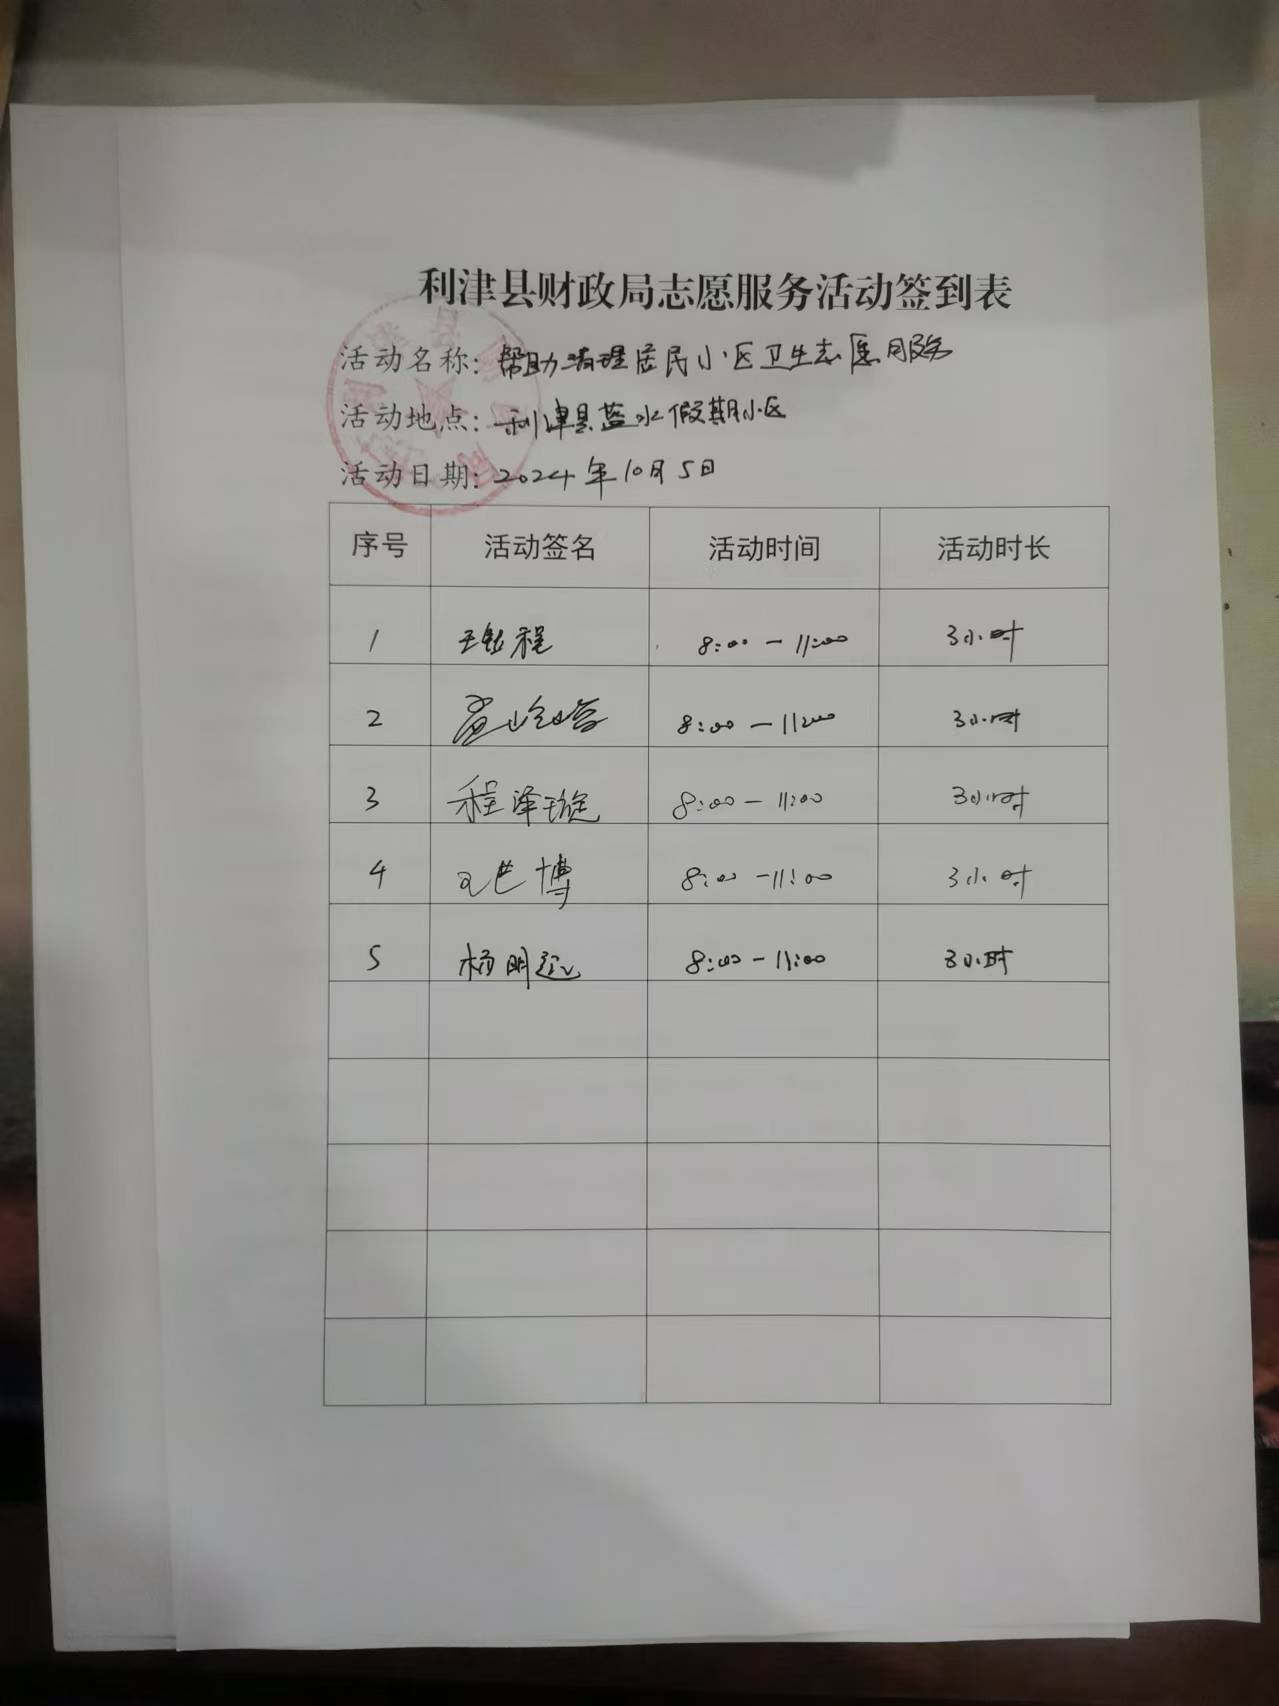 利津县财政局志愿服务活动签到表
活动名称: 帮助清理居民小区卫生志愿服务
活动地点: 利津县蓝水假期小区
活动日期: 2024年10月5日
序号 活动签名 活动时间 活动时长
1 程 8:00-11:00 3小时
2 8:00-11:00 3小时
3 程泽璇 8:00-11:00 3小时
4 博 8:00-11:00 3小时
5 杨明远 8:00-11:00 3小时